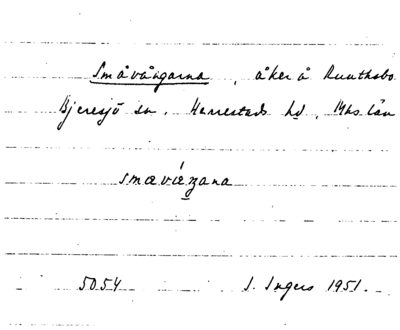 Småvångarna, åker å Ruuthsbo
Bjeresjö sn. Herrestads hd, Mhs län
smœvíeŋana
5054 I. Ingers 1951.